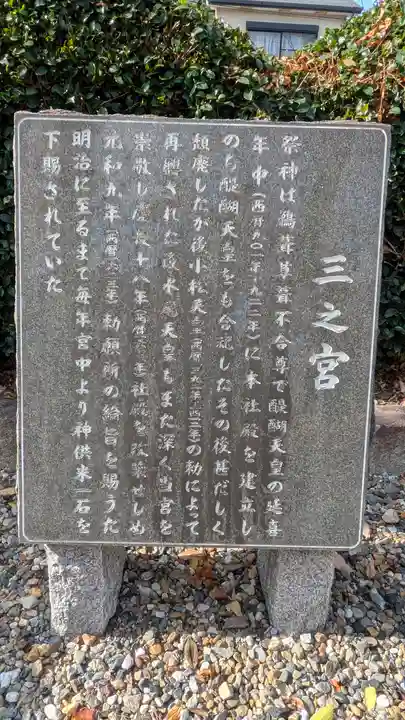 三之宮
祭神は鵜葺草葺不合尊で醍醐天皇の延喜
年中(西暦九〇一年~九二二年)に本社殿を建立し
のち醍醐天皇をも合祀したその後甚だしく
頽廃したが後小松天皇(西暦一三九二年~一四一二年)の勅によって
再興された後水尾天皇もまた深く当宮を
崇敬し慶長十八年(西暦 年)社殿を改築せしめ
元和九年(西暦一六二三年)勅願所の綸旨を賜うた
明治に至るまで毎年宮中より神供米一石を
下賜されていた